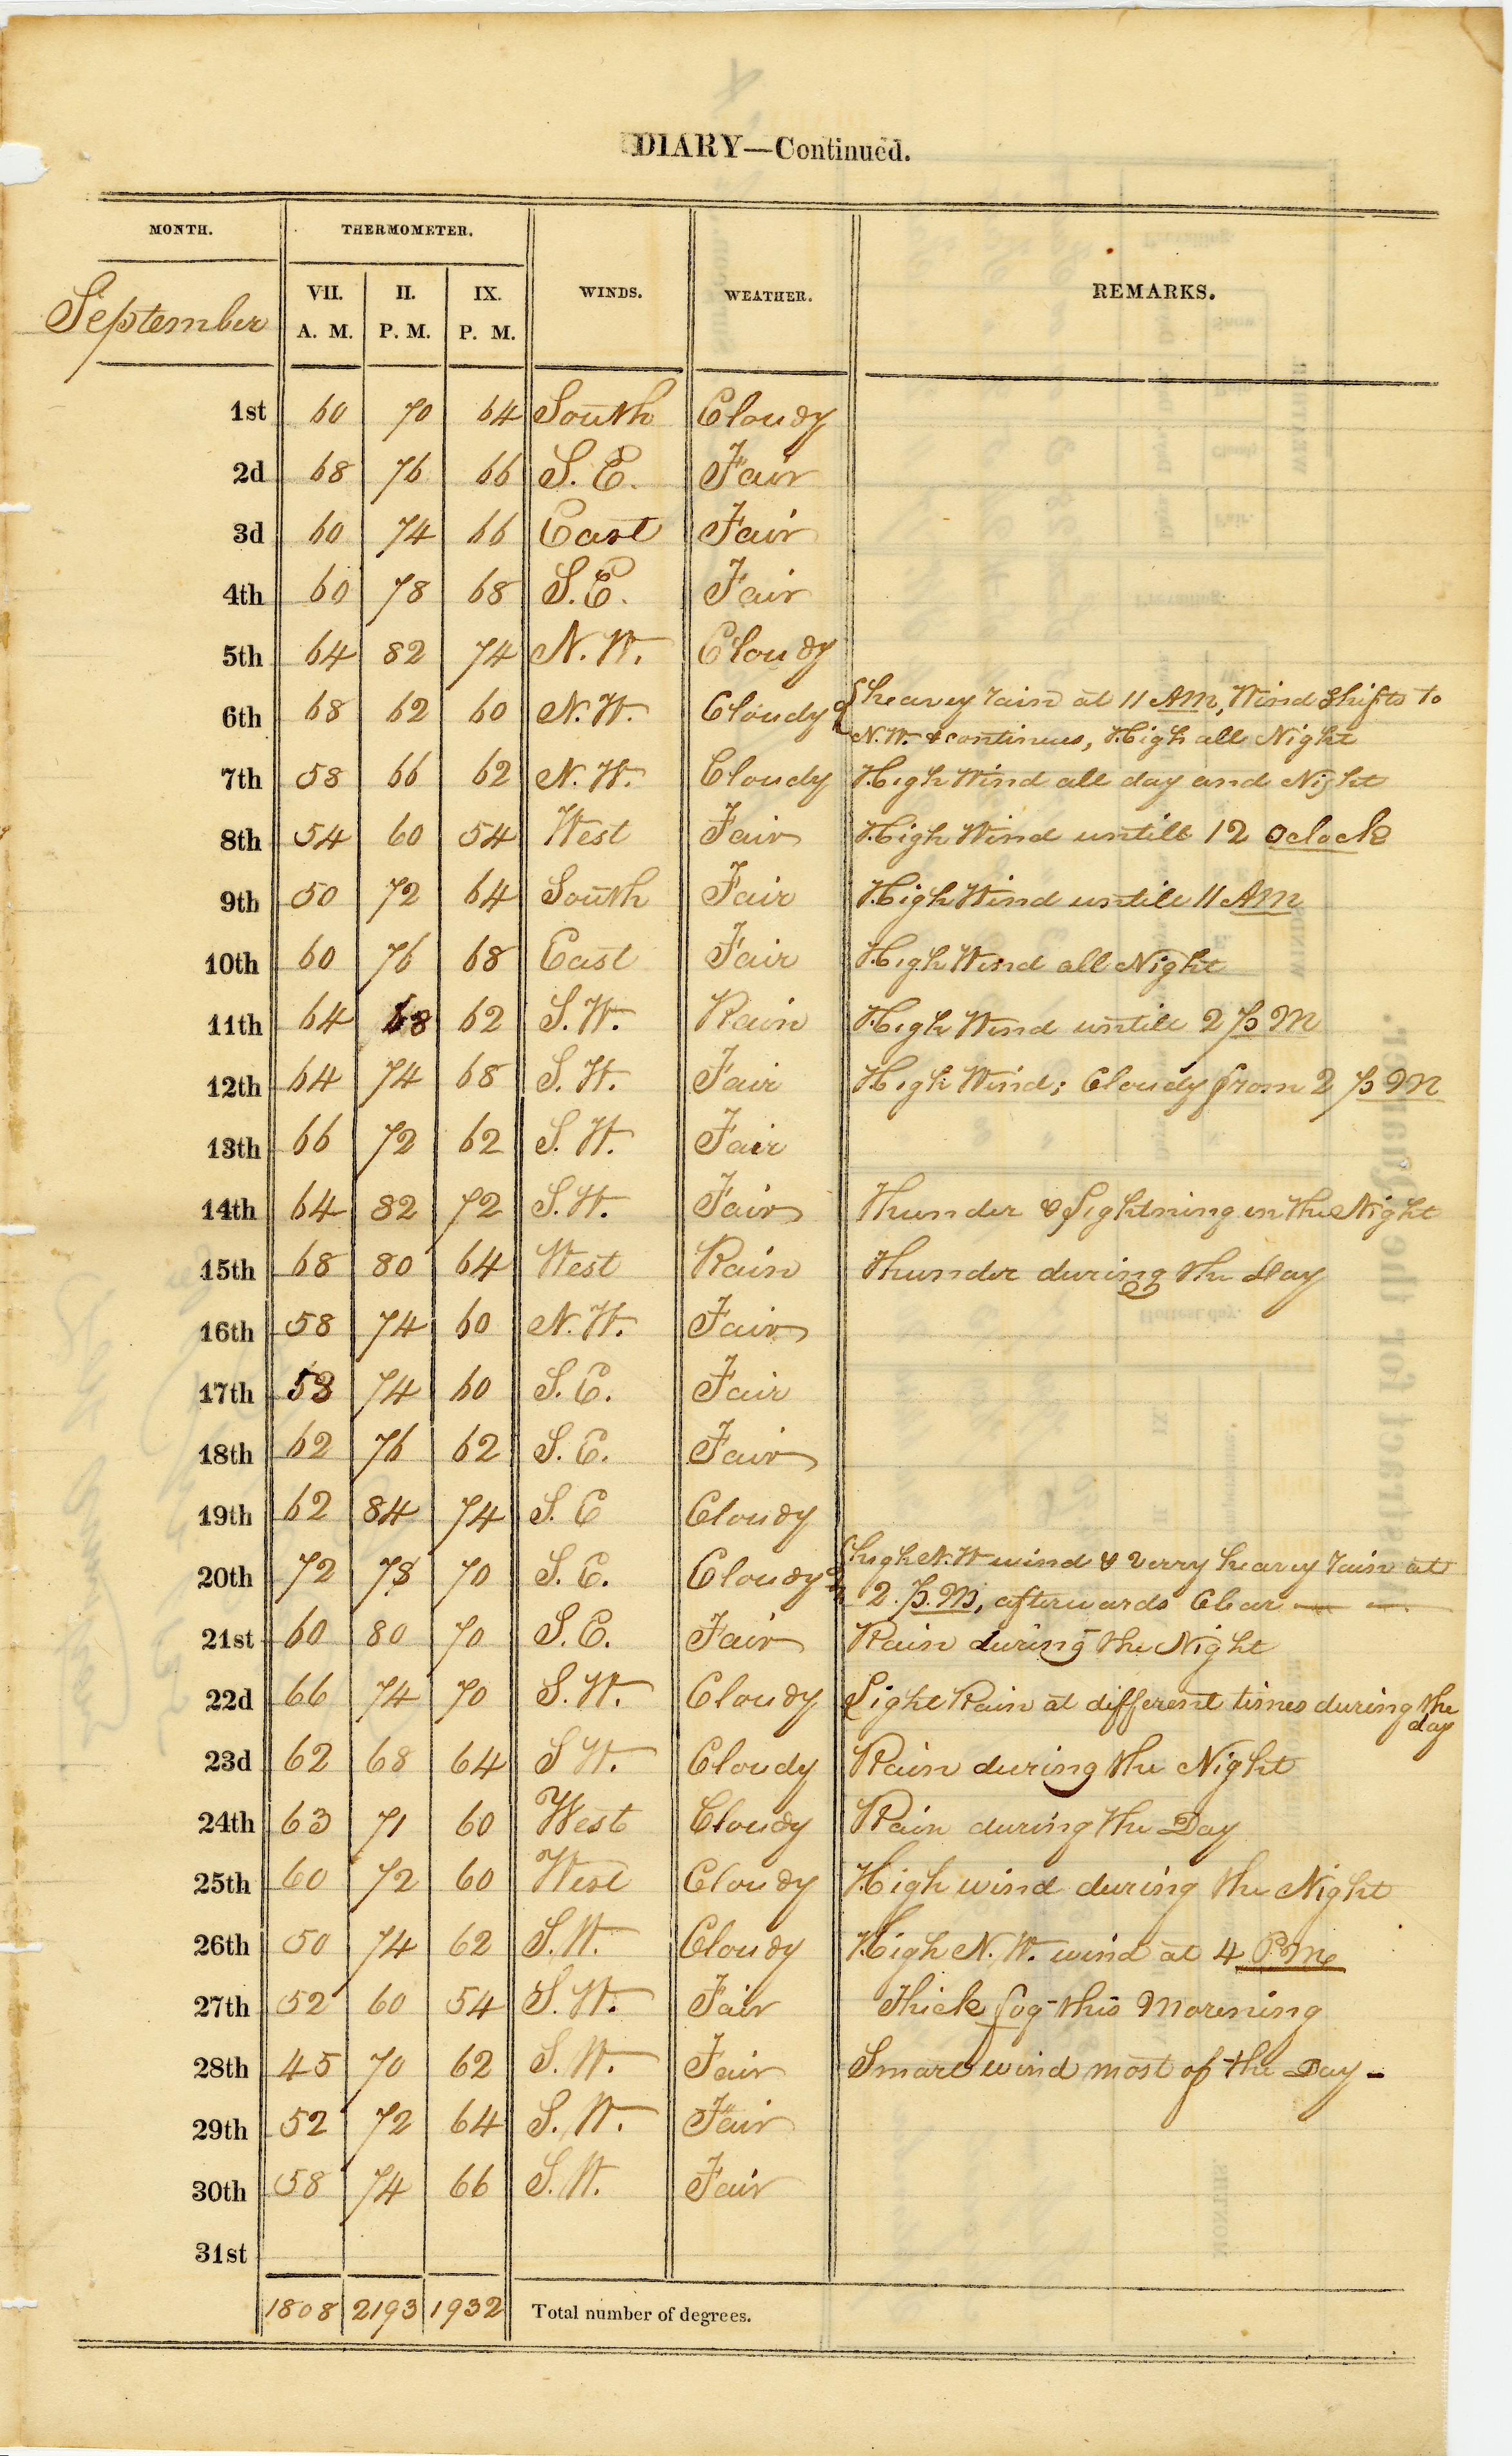 DIARY—Continued.
MONTH. THERMOMETER. WINDS. WEATHER. REMARKS.
September VII. A. M. II. P. M. IX. P. M.
1st 60 70 64 South Cloudy
2d 68 76 66 S. E. Fair
3d 60 74 66 East Fair
4th 60 78 68 S. E. Fair
5th 64 82 74 N. W. Cloudy
6th 68 62 60 N. W. Cloudy & heavey rain at 11 AM, Wind Shifts to
N. W. & continues, High all Night
7th 58 66 62 N. W. Cloudy High Wind all day and Night
8th 54 60 54 West Fair High Wind untill 12 oclock
9th 50 72 64 South Fair High Wind untill 11 AM
10th 60 76 68 East Fair High Wind all Night
11th 64 68 62 S. W. Rain High Wind untill 2 P M
12th 64 74 68 S. W. Fair High Wind; Cloudy from 2 P M
13th 66 72 62 S. W. Fair
14th 64 82 72 S. W. Fair Thunder & Lightning in the Night
15th 68 80 64 West Rain Thunder during the Day
16th 58 74 60 N. W. Fair
17th 58 74 60 S. E. Fair
18th 62 76 62 S. E. Fair
19th 62 84 74 S. E Cloudy
20th 72 78 70 S. E. Cloudy high N. W wind & verry heavey rain at
2. P. M, afterwards Clear — —
21st 60 80 70 S. E. Fair Rain during the Night
22d 66 74 70 S. W. Cloudy Light Rain at different times during the
day
23d 62 68 64 S W. Cloudy Rain during the Night
24th 63 71 60 West Cloudy Rain during the Day
25th 60 72 60 West Cloudy High wind during the Night
26th 50 74 62 S. W. Cloudy High N. W. wind at 4 P.M.
27th 52 60 54 S. W. Fair Thick fog this Morening
28th 45 70 62 S. W. Fair Smart wind most of the Day -
29th 52 72 64 S. W. Fair
30th 58 74 66 S. W. Fair
31st
1808 2193 1932 Total number of degrees.